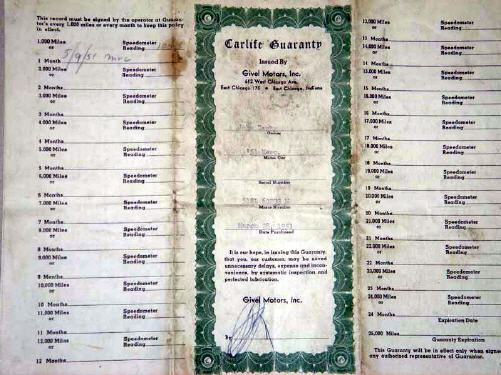 This record must be signed by the operator at Guaran-
tor's every 1,000 miles or every month to keep this policy
in effect.
1,000 Miles Speedometer
or Reading
1 Month
5/9/51
2,000 Miles Speedometer
or Reading
2 Months
3,000 Miles Speedometer
or Reading
3 Months
4,000 Miles Speedometer
or Reading
4 Months
5,000 Miles Speedometer
or Reading
5 Months
6,000 Miles Speedometer
or Reading
6 Months
7,000 Miles Speedometer
or Reading
7 Months
8,000 Miles Speedometer
or Reading
8 Months
9,000 Miles Speedometer
or Reading
9 Months
10,000 Miles Speedometer
or Reading
10 Months
11,000 Miles Speedometer
or Reading
11 Months
12,000 Miles Speedometer
or Reading
12 Months
Carlife Guaranty
Issued By
Givel Motors, Inc.
612 West Chicago Ave.
East Chicago 175 East Chicago, Indiana
Owner
Motor Car
Serial Number
Motor Number
March 28, 1951
Date Purchased
It is our hope, in issuing this Guaranty,
that you, our customer, may be saved
unnecessary delays, expense and incon-
venience, by systematic inspection and
perfected lubrication.
Givel Motors, Inc.
By
13,000 Miles Speedometer
or Reading
13 Months
14,000 Miles Speedometer
or Reading
14 Months
15,000 Miles Speedometer
or Reading
15 Months
16,000 Miles Speedometer
or Reading
16 Months
17,000 Miles Speedometer
or Reading
17 Months
18,000 Miles Speedometer
or Reading
18 Months
19,000 Miles Speedometer
or Reading
19 Months
20,000 Miles Speedometer
or Reading
20 Months
21,000 Miles Speedometer
or Reading
21 Months
22,000 Miles Speedometer
or Reading
22 Months
23,000 Miles Speedometer
or Reading
23 Months
24,000 Miles Speedometer
or Reading
24 Months
Expiration Date
25,000 Miles
or Guaranty Expiration
This Guaranty will be in effect only when signed
any authorized representative of Guarantor.